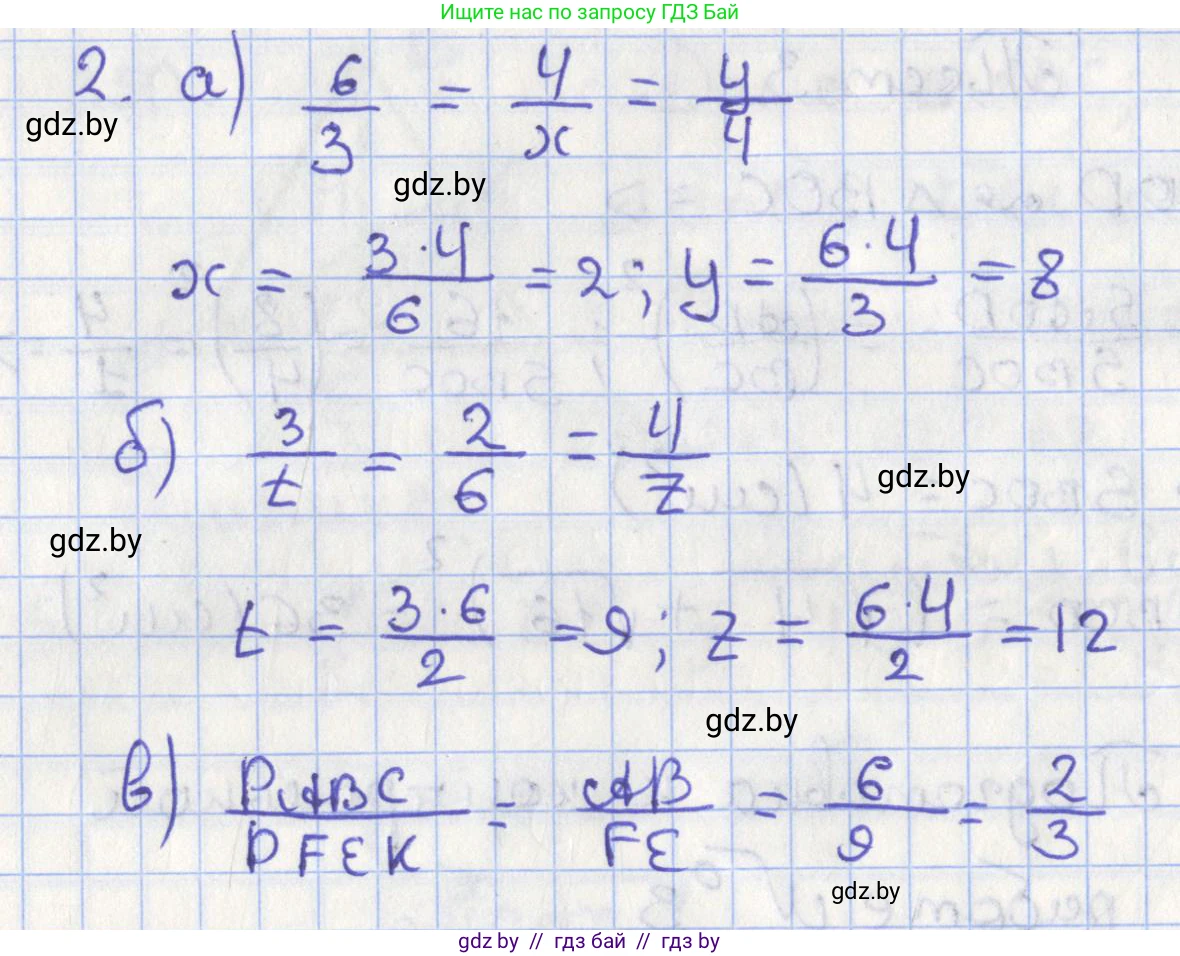 Ищите нас по запросу ГДЗ Бай
2. а) 6/3 = 4/x = y/4
gdz.by
gdz.by
x = 3·4/6 = 2; y = 6·4/3 = 8
б) 3/t = 2/6 = 4/z
gdz.by
gdz.by
t = 3·6/2 = 9; z = 6·4/2 = 12
gdz.by
в) PABC/PFEK = AB/FE = 6/9 = 2/3
gdz.by
gdz by // гдз бай // гдз by